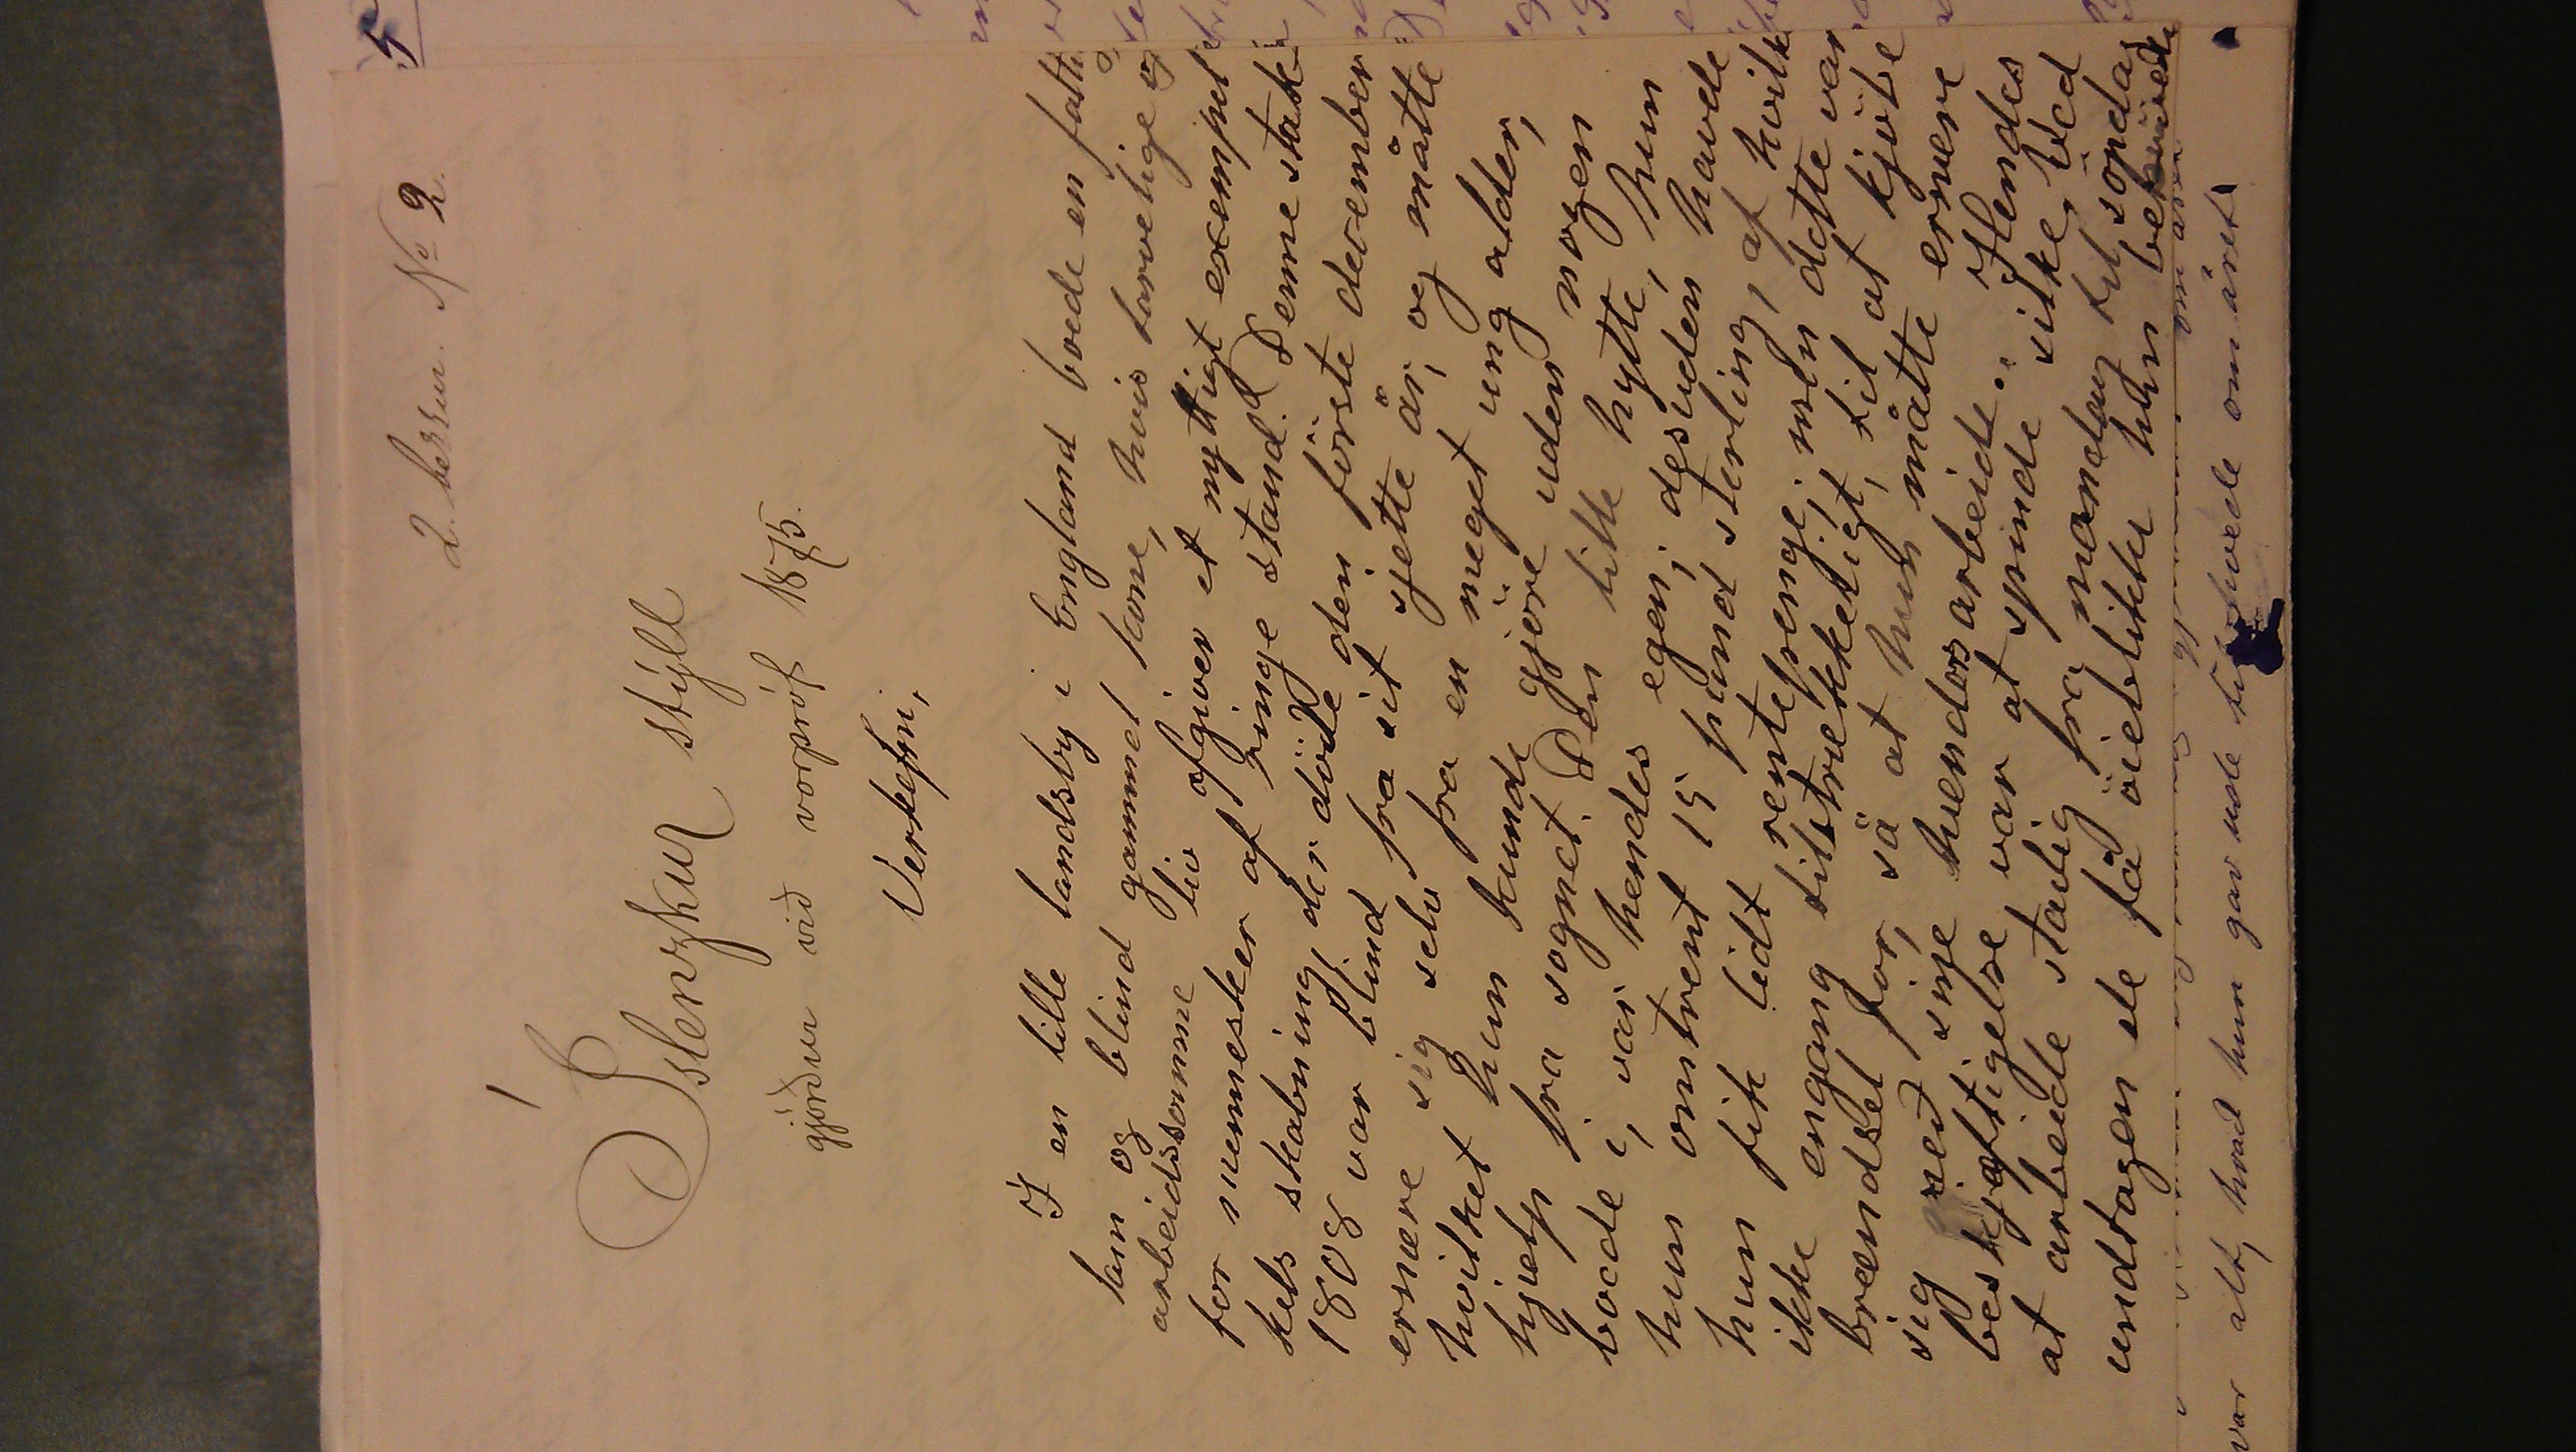 2. bersur. No 2.
Íslenzkur stýll
gjörður við vorpróf 1875.
Verkefni,
I en lille landsby i England boede en fatti
lam og blind gammel kone, hvis tarvelige og
arbeidssomme liv afgiver et nyttigt exempel
for mennesker af ringe stand. Denne stak-
kels skabning, der döde den förste december
1808 var blind fra sit sjette år, og måtte
ernære sig selv fra en meget ung alder,
hvilket hun kunde gjöre uden nogen
hjælp fra sognet. Den lille hytte, hun
boede i, var hendes egen; desuden havde
hun omtrent 15 pund sterling, af hvilke
hun fik lidt rentepenge; men dette var
ikke engang tilstrækkeligt, til at kjöbe
brændsel for, så at hun måtte ernære
sig ved sine hændersarbeide. Hendes
beskjæftigelse var at spinde silke, ved
at arbeide stadig fra mandag til söndag
undtagen de få öieblikke hun behövede
var alt, hvad hun gav ude til huede om året